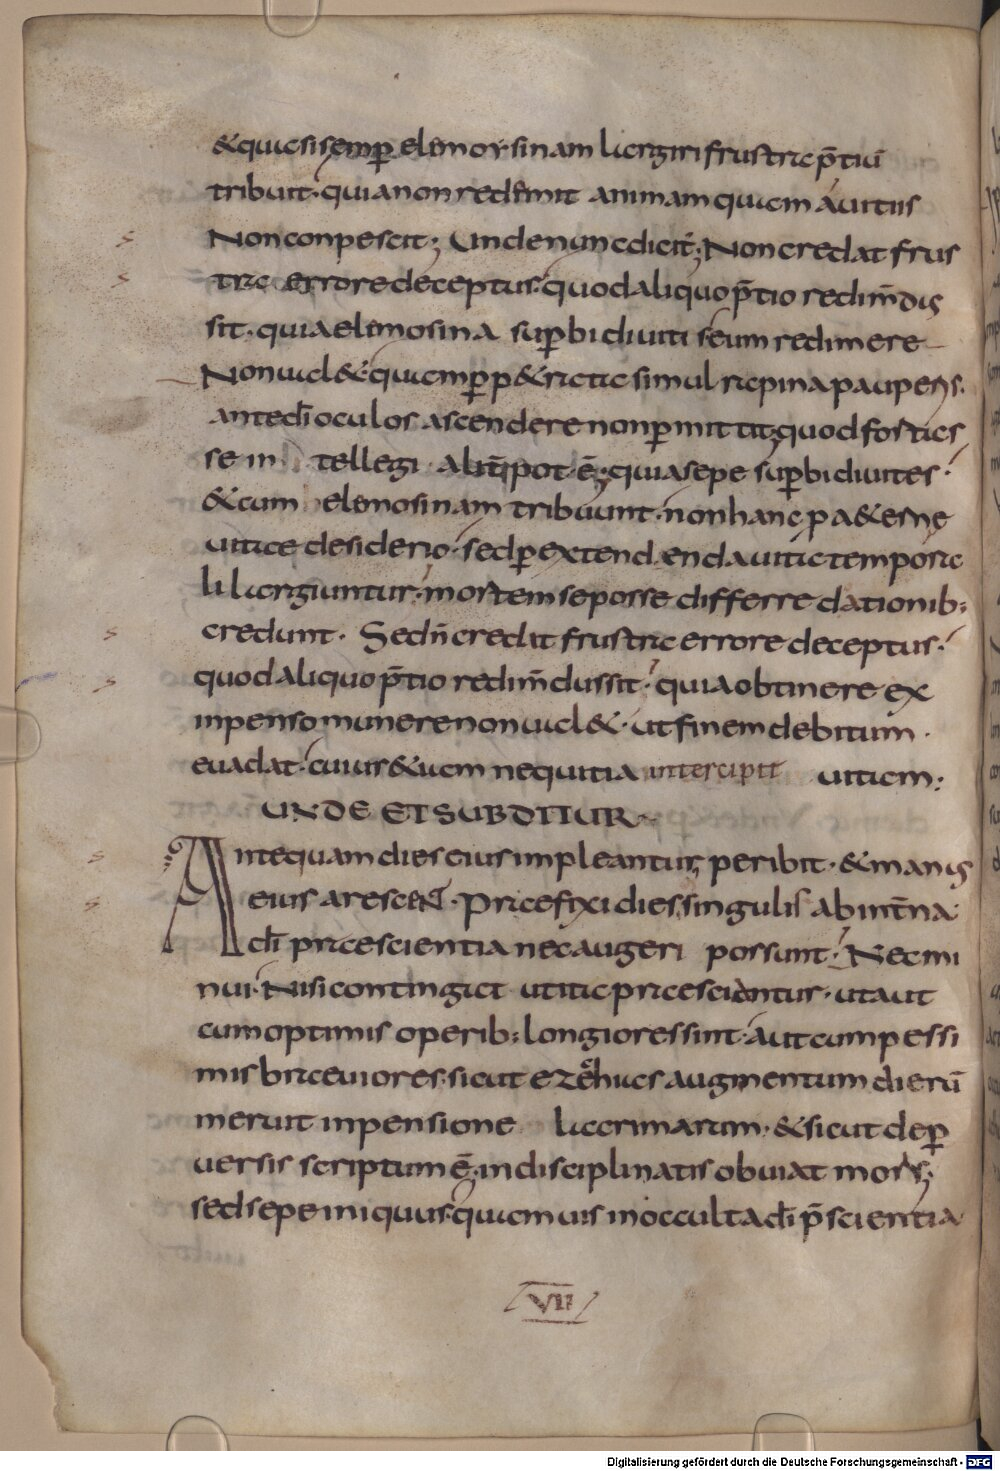 &quiesi semp elemosinam largiri frustra p̄tiū
tribuit· quia non redemit animam quam auitiis
Non conpescit; Unde nunc dicit; Non credat frus
tra errore deceptus· quod aliquo p̄tio redim̄dus
sit· quia elemosina superbi diuiti seum redimere
Non ual& quem p p&rata simul rapina pauperis·
ante dī oculos ascendere non permittit· quod fortas
se in tellegi alit̄ pot· ē; quia sepe superbi diuites·
&cum elemosinam tribuunt· non hanc p a&erne
uitae desiderio· sed p extendenda uita tempora
li largiuntur· mortem se posse differre dationib;
credunt· Sed n̄ credat frustra errore deceptus·
quod aliquo p̄tio redim̄dus sit· quia obtinere ex
inpenso munere non ual&· ut finem debitum·
euadat· cuius &iam nequitia intercipit uitam·
UNDE ET SUBDITUR
Antequam dies eius impleantur, peribit· &manus
eius arescent· Praefixi dies singulis ab interna
dī praescientia nec augeri possunt· Nec mi
nui· Nisi contingat ut ita praesciantur· ut aut
cum optimis operib; longiores sint· aut cum pessi
mis breuiores· sicut ezechias augmentum dierū
meruit inpensione lacrimarum· &sicut de per
uersis scriptum ē; indisciplinatis obuiat mors;
sed sepe iniquus quamuis in occulta dī p̄scientia
VII
Digitalisierung gefördert durch die Deutsche Forschungsgemeinschaft - DFG